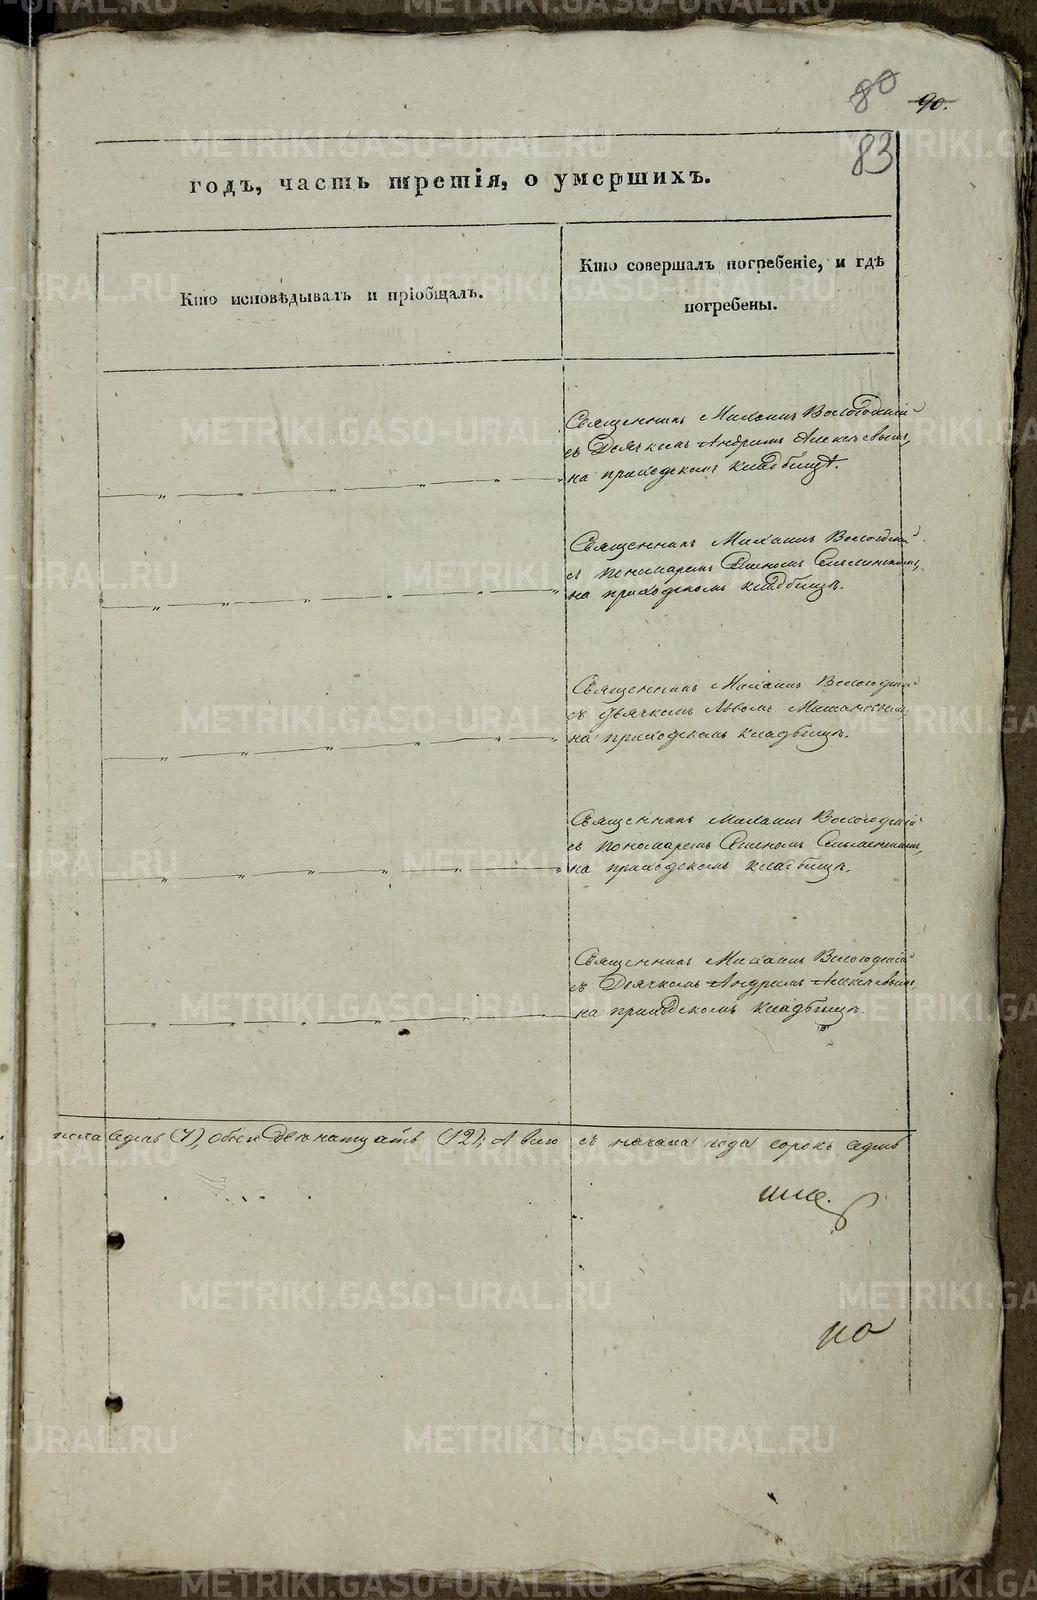 80 90.
83
годъ, часть третія, о умершихъ.
Кто исповѣдывалъ и пріобщалъ.
Кто совершалъ погребеніе, и гдѣ
погребены.
Священникъ Михаилъ Вологодскій
съ Дьячкомъ Андреемъ Алексѣевымъ,
на приходскомъ кладбищѣ.
Священникъ Михаилъ Вологодскій
съ пономаремъ
на приходскомъ кладбищѣ.
Священникъ Михаилъ Вологодскій
съ дьячкомъ Львомъ
на приходскомъ кладбищѣ.
Священникъ Михаилъ Вологодскій
съ пономаремъ
на приходскомъ кладбищѣ.
Священникъ Михаилъ Вологодскій
съ Дьячкомъ Андреемъ Алексѣевымъ,
на приходскомъ кладбищѣ.
пола седмь (7), обоего двенатцать (12); А всего съ начала года сорокъ седмь
METRIKI.GASO-URAL.RU